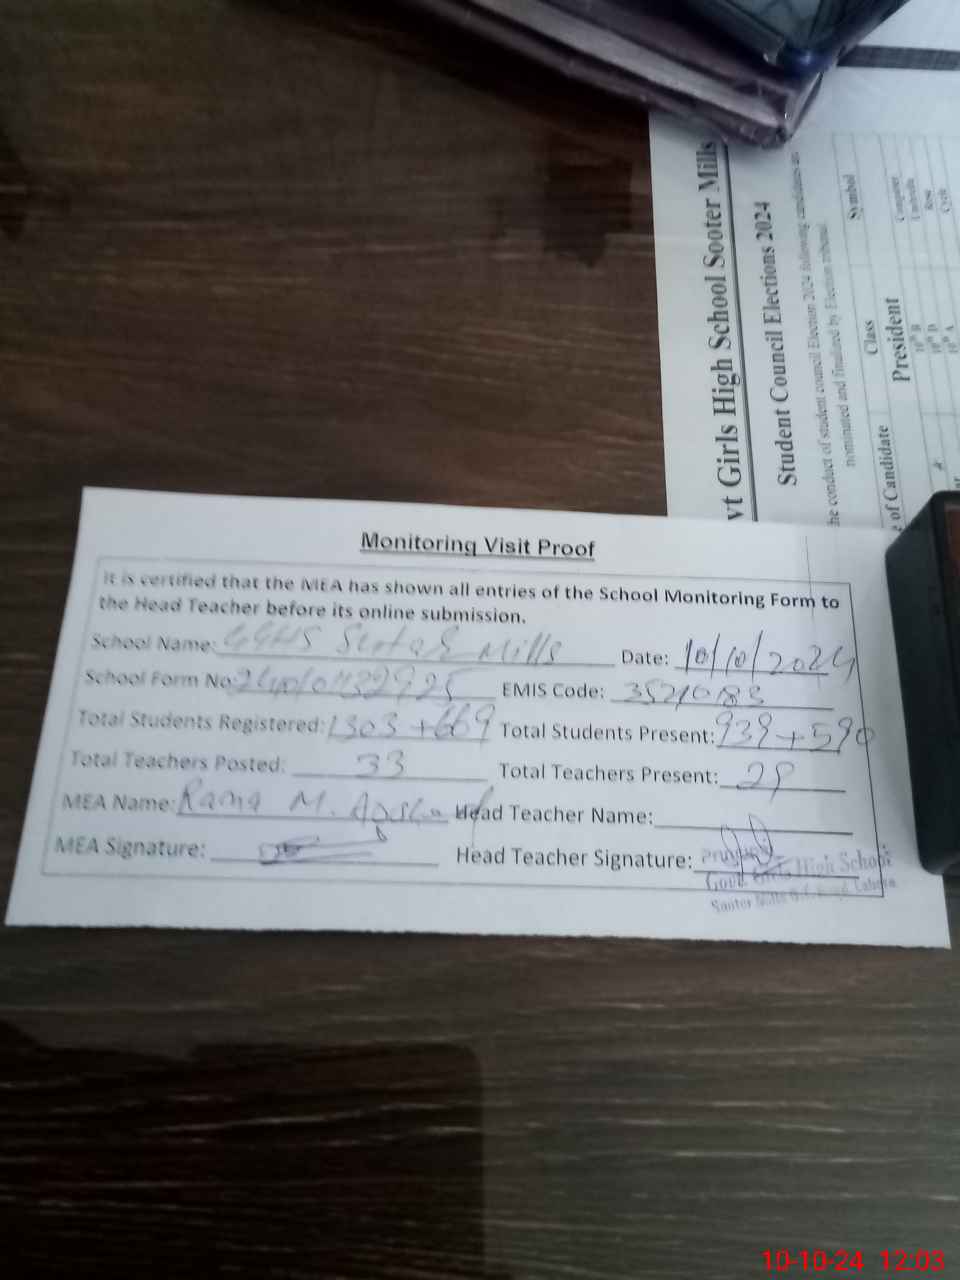 Monitoring Visit Proof
It is certified that the MEA has shown all entries of the School Monitoring Form to
the Head Teacher before its online submission.
School Name: GGHS Mills Date: 10/10/2024
School Form No: EMIS Code: 35210183
Total Students Registered: 1303+669 Total Students Present: 939+590
Total Teachers Posted: 33 Total Teachers Present:
MEA Name: Rana M. Head Teacher Name:
MEA Signature: Head Teacher Signature:
Govt Girls High School
Lahore
vt Girls High School Sooter Mills
Student Council Elections 2024
he conduct of student council Election 2024 following candidates are
nominated and finalized by Election tribunal.
e of Candidate Class Symbol
President
10th B Computer
10th D Umbrella
10th A Rose
Cycle
10-10-24 12:03